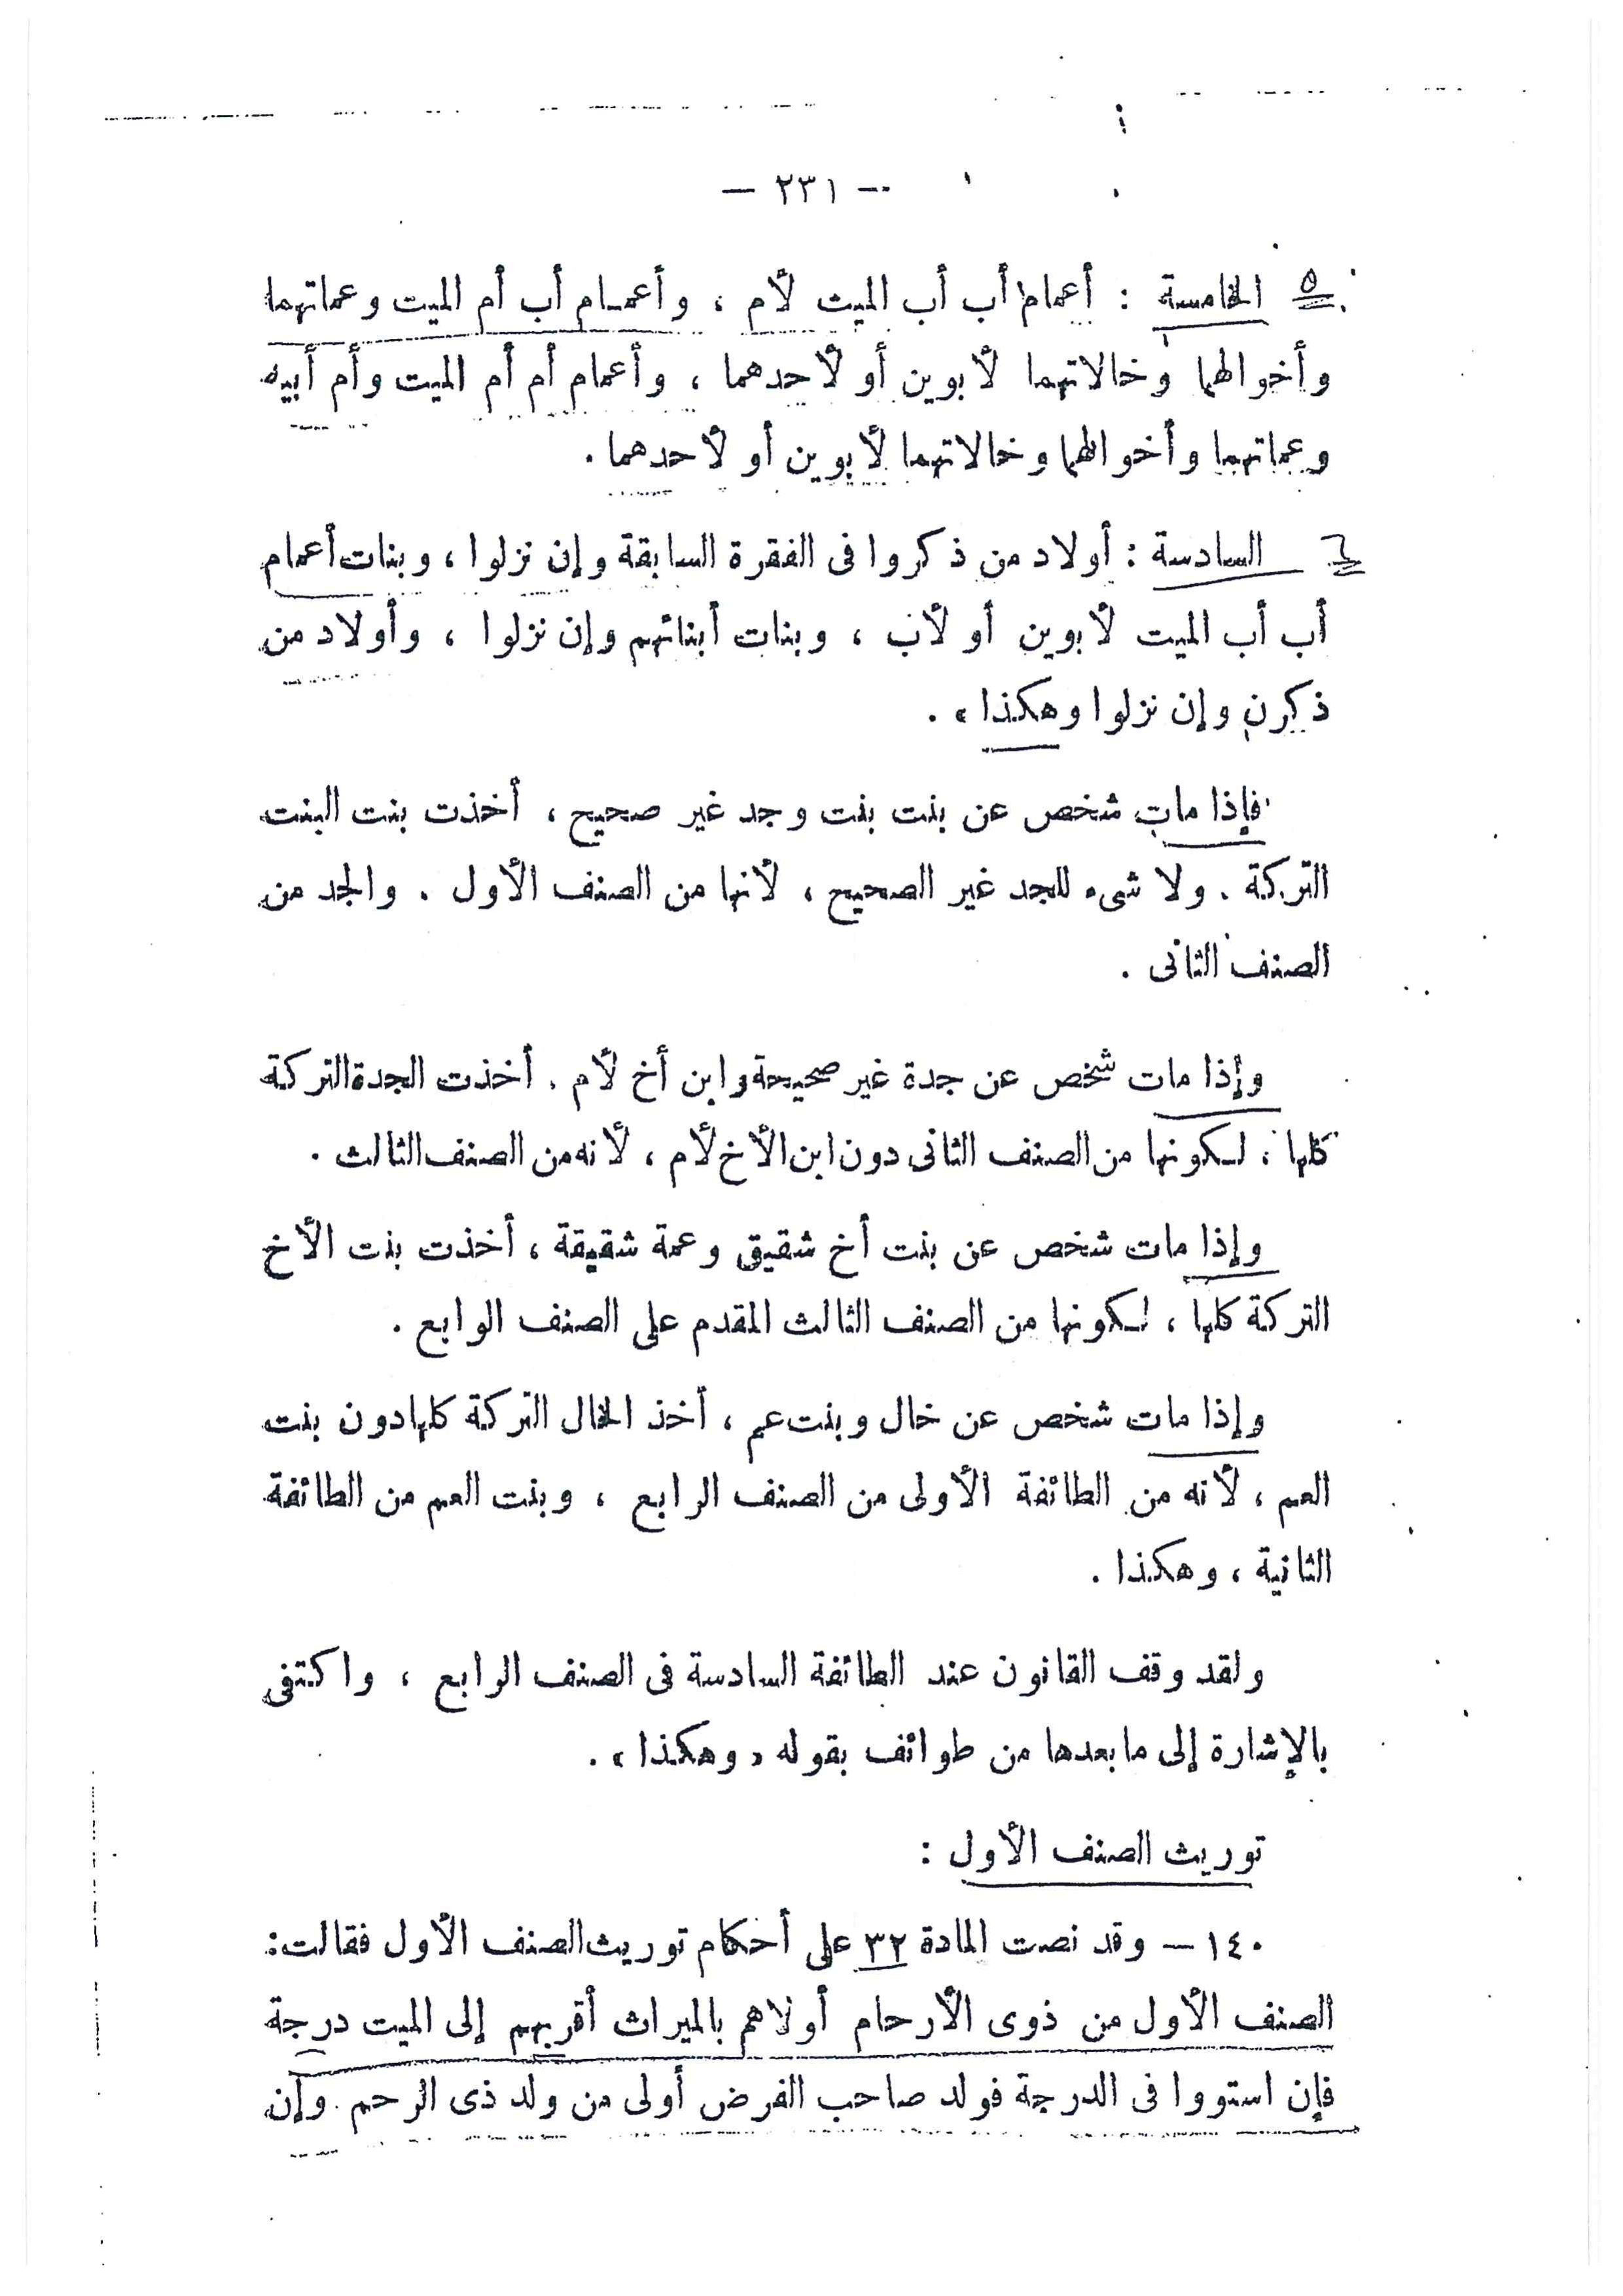 — ٢٣١ —
٥ الخامسة : أعمام أب أب الميت لأم ، وأعمام أب أم الميت وعماتهما
وأخوالهما وخالاتهما لأبوين أو لأحدهما ، وأعمام أم أم الميت وأم أبيه
وعماتهما وأخوالهما وخالاتهما لأبوين أو لأحدهما .
٦ السادسة : أولاد من ذكروا فى الفقرة السابقة وإن نزلوا ، وبنات أعمام
أب أب الميت لأبوين أو لأب ، وبنات أبنائهم وإن نزلوا ، وأولاد من
ذكرن وإن نزلوا وهكذا » .
فإذا مات شخص عن بنت بنت وجد غير صحيح ، أخذت بنت البنت
التركة . ولا شىء للجد غير الصحيح ، لأنها من الصنف الأول . والجد من
الصنف الثانى .
وإذا مات شخص عن جدة غير صحيحة وابن أخ لأم . أخذت الجدة التركة
كلها ، لكونها من الصنف الثانى دون ابن الأخ لأم ، لأنه من الصنف الثالث .
وإذا مات شخص عن بنت أخ شقيق وعمة شقيقة ، أخذت بنت الأخ
التركة كلها ، لكونها من الصنف الثالث المقدم على الصنف الرابع .
وإذا مات شخص عن خال وبنت عم ، أخذ الخال التركة كلها دون بنت
العم ، لأنه من الطائفة الأولى من الصنف الرابع ، وبنت العم من الطائفة
الثانية ، وهكذا .
ولقد وقف القانون عند الطائفة السادسة فى الصنف الرابع ، واكتفى
بالإشارة إلى ما بعدها من طوائف بقوله « وهكذا » .
توريث الصنف الأول :
١٤٠ — وقد نصت المادة ٣٢ على أحكام توريث الصنف الأول فقالت :
الصنف الأول من ذوى الأرحام أولاهم بالميراث أقربهم إلى الميت درجة
فإن استووا فى الدرجة فولد صاحب الفرض أولى من ولد ذى الرحم . وإن